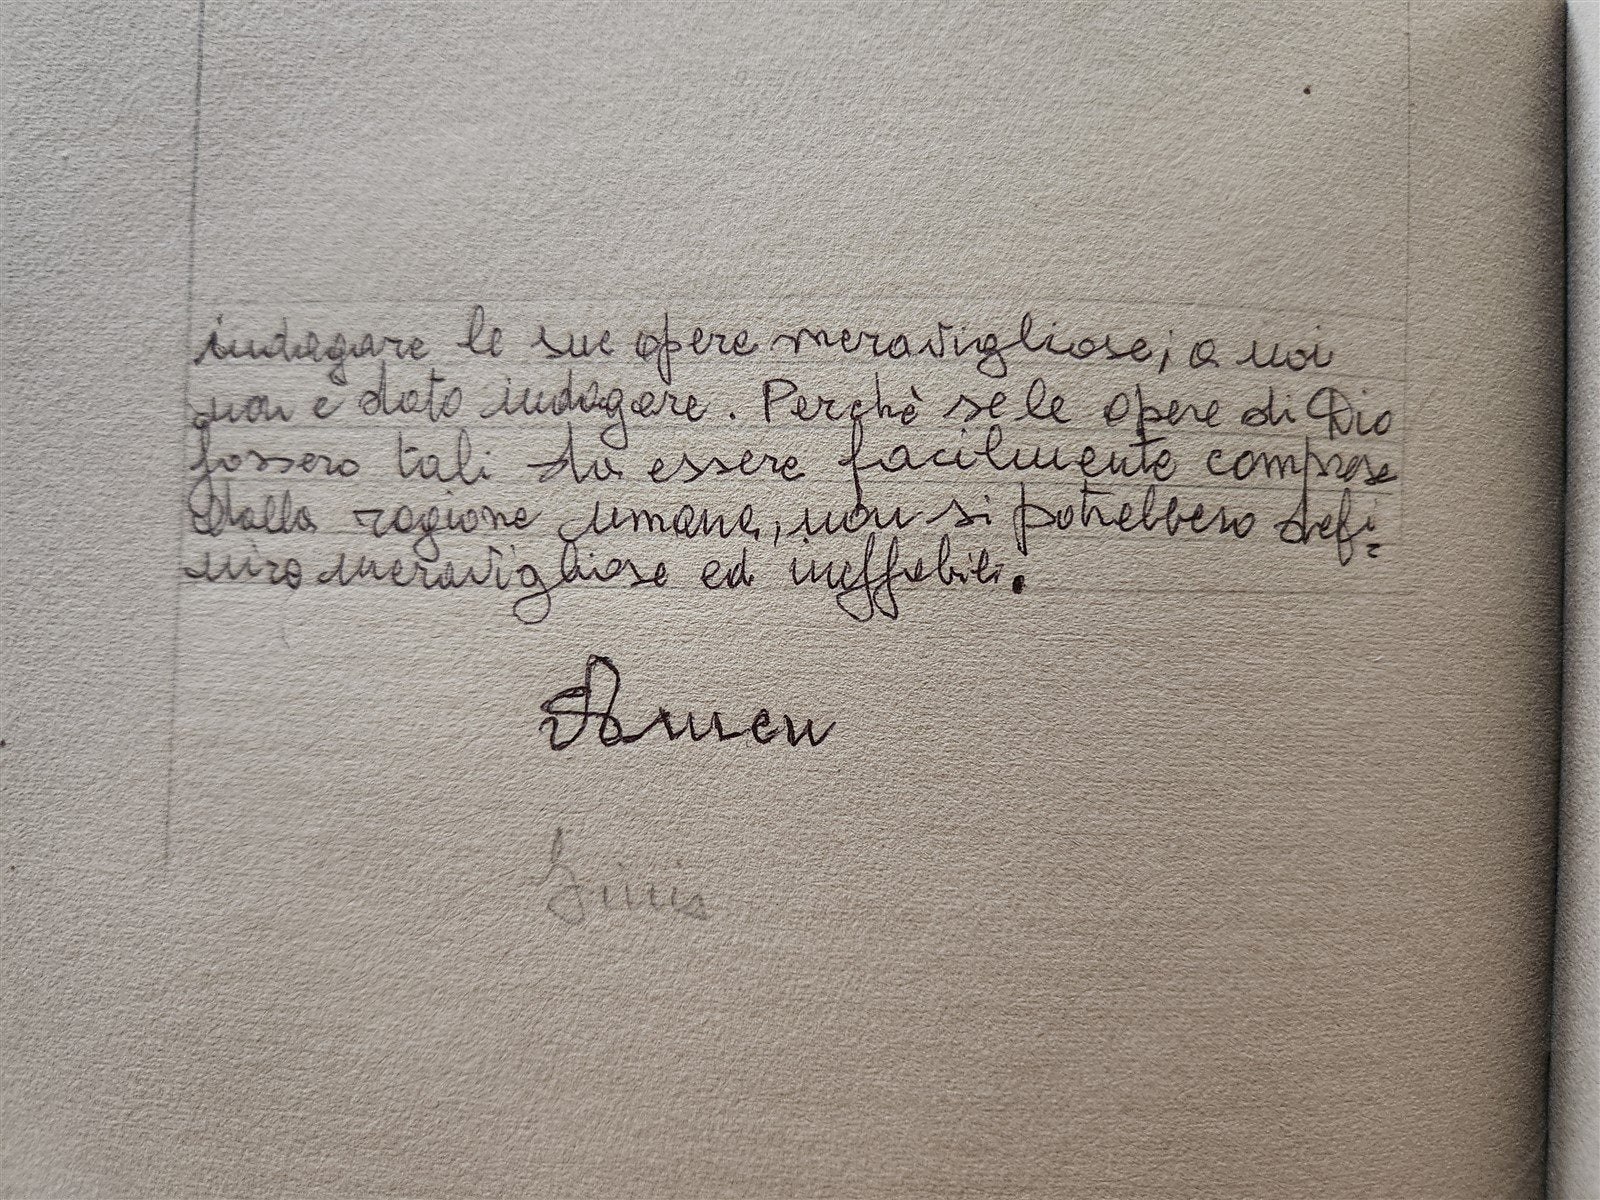 indagare le sue opere meravigliose; a noi
non è dato indagare. Perchè se le opere di Dio
fossero tali da essere facilmente comprese
dalla ragione umana, non si potrebbero defi=
nire meravigliose ed ineffabili.
Amen
Finis